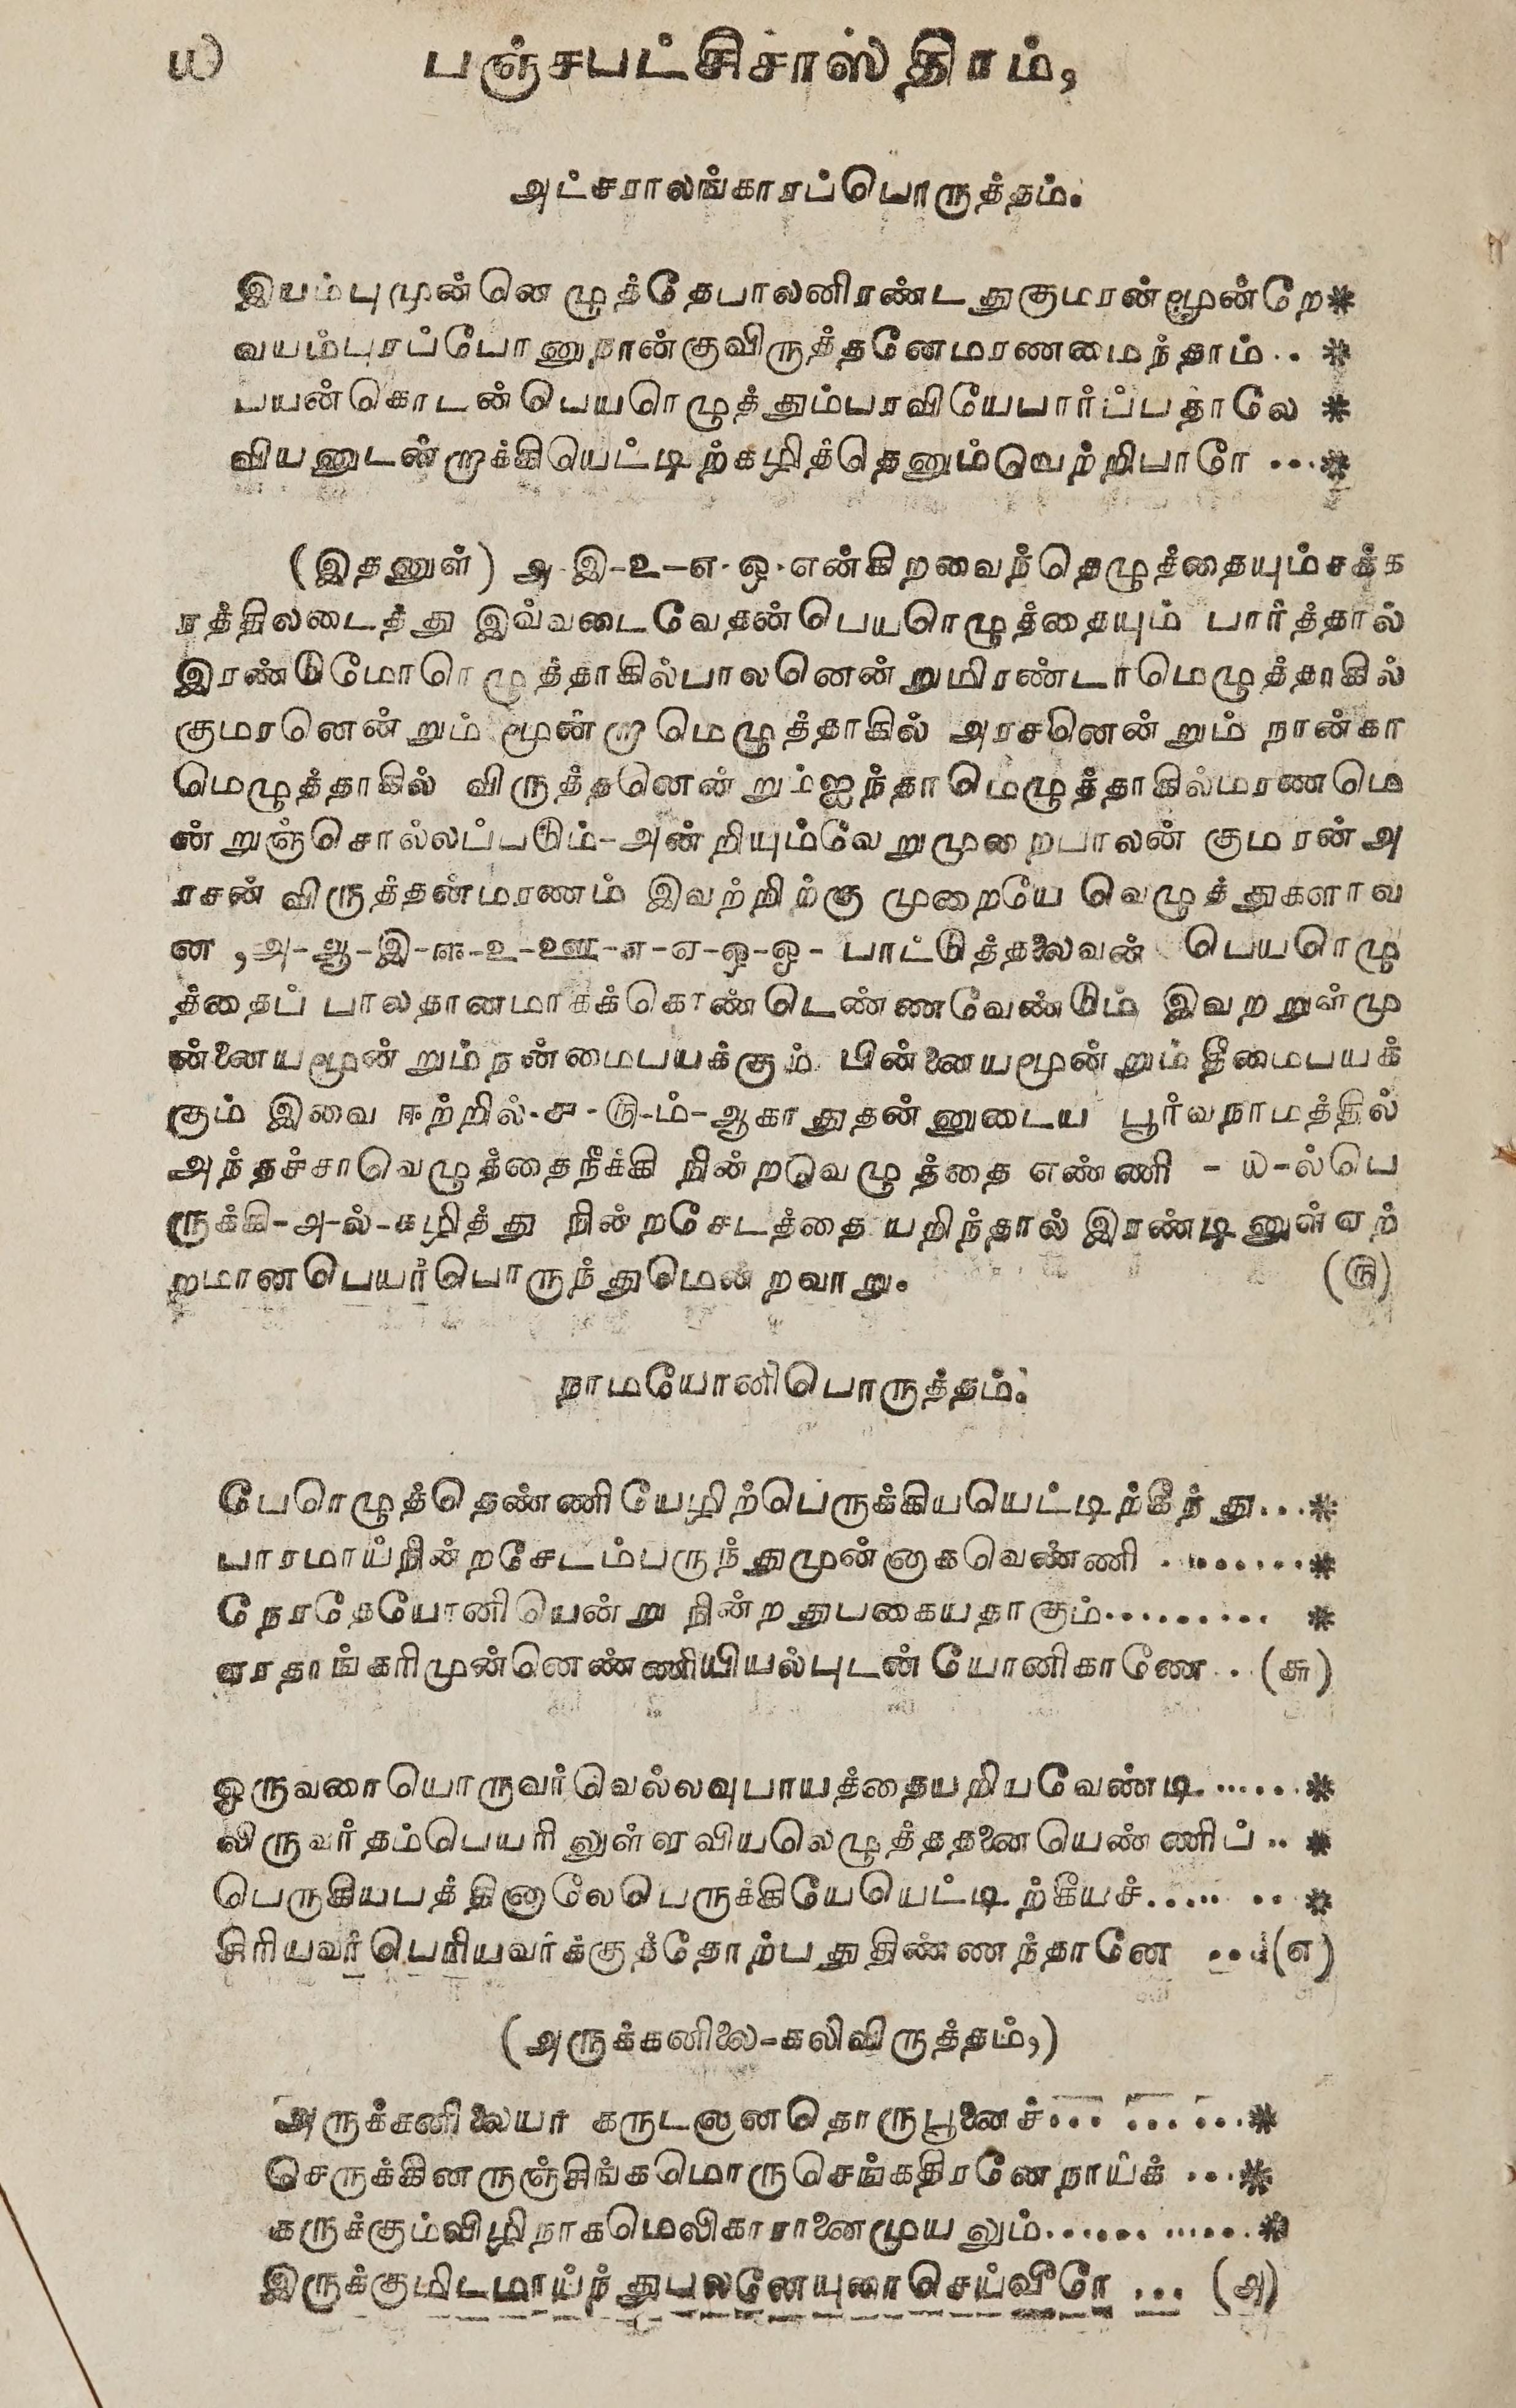 ௰ பஞ்சபட்சிசாஸ்திரம்,
அட்சராலங்காரப்பொருத்தம்.
இயம்புமுன்னெழுத்தேபாலனிரண்டதுகுமரன்மூன்றே*
வயம்புரப்போனுநான்குவிருத்தனேமரணமைந்தாம்.. *
பயன்கொடன்பெயரெழுத்தும்பரவியேபார்ப்பதாலே *
வியனுடன்றாக்கியெட்டிற்கழித்தெனும்வெற்றிபாரே ...*
(இதனுள்) அ-இ-உ-எ-ஒ-என்கிறவைந்தெழுத்தையும்சக்க
ரத்திலடைத்து இவ்வடைவேதன்பெயரெழுத்தையும் பார்த்தால்
இரண்டுமோரெழுத்தாகில்பாலனென்றுமிரண்டாமெழுத்தாகில்
குமரனென்றும் மூன்றாமெழுத்தாகில் அரசனென்றும் நான்கா
மெழுத்தாகில் விருத்தனென்றும்ஐந்தாமெழுத்தாகில்மரணமெ
ன்றுஞ்சொல்லப்படும்-அன்றியும்வேறுமுறைபாலன் குமரன்அ
ரசன் விருத்தன்மரணம் இவற்றிற்கு முறையே வெழுத்துகளாவ
ன ,அ-ஆ-இ-ஈ-உ-ஊ-எ-ஏ-ஒ-ஓ- பாட்டுத்தலைவன் பெயரெழு
த்தைப் பாலதாணமாகக்கொண்டெண்ணவேண்டும் இவற்றுள்மு
ன்னையமூன்றும்நன்மைபயக்கும் பின்னையமூன்றும்தீமைபயக்
கும் இவை ஈற்றில்-௪-௫-ம்-ஆகாதுதன்னுடைய பூர்வநாமத்தில்
அந்தச்சாவெழுத்தைநீக்கி நின்றவெழுத்தை எண்ணி - ௰-ல்பெ
ருக்கி-அ-ல்-கழித்து நின்றசேடத்தை யறிந்தால் இரண்டினுள்ஏற்
றமானபெயர்பொருந்துமென்றவாறு. (௫)
நாமயோனிபொருத்தம்.
பேரெழுத்தெண்ணியேழிற்பெருக்கியயெட்டிற்கீந்து...*
பாரமாய்நின்றசேடம்பருந்துமுன்னாகவெண்ணி ........*
நேரதேயோனியென்று நின்றதுபகையதாகும்.......... *
ஏரதாங்கரிமுன்னெண்ணியியல்புடன்யோனிகாணே .. (௬)
ஒருவரையொருவர்வெல்லவுபாயத்தையறியவேண்டி ......*
லிருவர்தம்பெயரினுள்ளவியலெழுத்ததனையெண்ணிப் .. *
பெருகியபத்தினாலேபெருக்கியேயெட்டிற்கீயச்..... .. *
சிரியவர்பெரியவர்க்குத்தோற்பதுதிண்ணந்தானே ...(எ)
(அருக்கனிலை-கலிவிருத்தம்,)
அருக்கனிலையர் கருடனானதொருபூனைச்... ... ...*
செருக்கினருஞ்சிங்கமொருசெங்கதிரணேநாய்க் ...*
கருக்கும்விழிநாகமெலிகாரானைமுயலும்...... ......*
இருக்குமிடமாய்ந்துபலனேயுரைசெய்வீரே ... (அ)